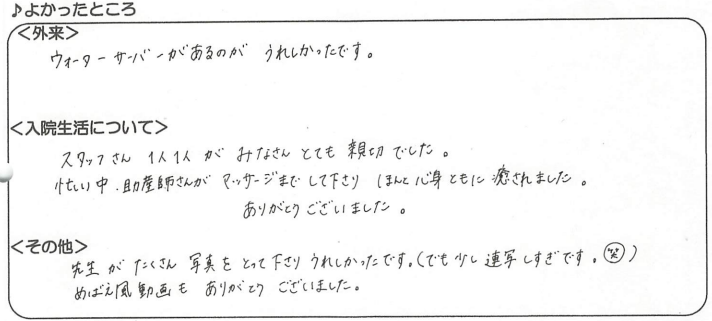 ♪よかったところ
<外来>
ウォーターサーバーがあるのが うれしかったです。
<入院生活について>
スタッフさん 1人1人 が みなさん とても 親切 でした。
忙しい中、助産師さんが マッサージまで して下さり ほんと 心身ともに 癒されました。
ありがとうございました。
<その他>
先生 が たくさん 写真を とって下さり うれしかったです。(でも少し 連写しすぎです。笑)
めばえ風動画も ありがとうございました。